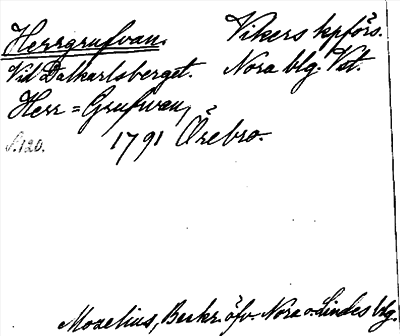 Herrgrufvan. Vikers kpförs.
Vid Dalkarlsberget. Nora blg. Vst.
Herr=Grufwan,
S. 120. 1791 Örebro.
Moxelius, Beskr. öfv. Nora o. Lindes blg.